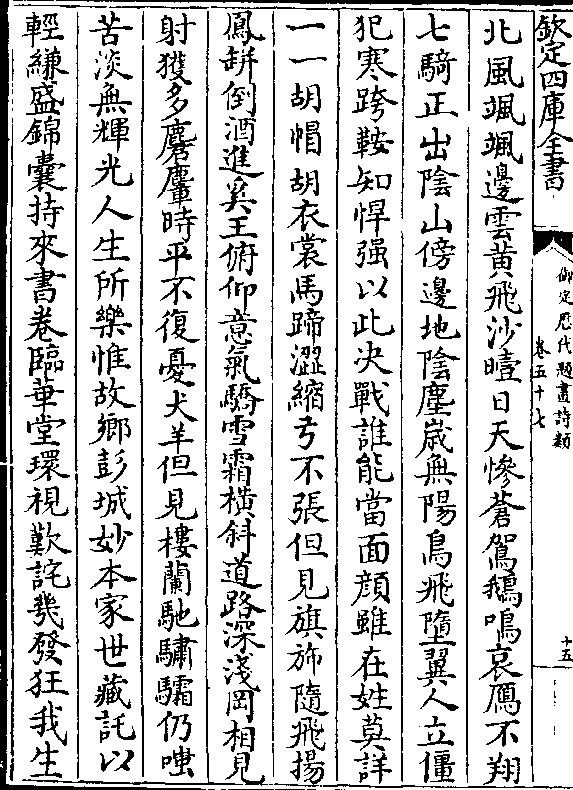 欽定四庫全書
御定歷代題畫詩類
卷五十七
十五
北風颯颯邊雲黄飛沙曀日天慘蒼鴐鵝鳴哀鴈不翔
七騎正出陰山傍邊地陰塵嵗無陽鳥飛墮翼人立僵
犯寒跨鞍知悍强以此决戰誰能當面顔雖在姓莫詳
一一胡帽胡衣裳馬蹄澀縮弓不張但見旗斾隨飛揚
鳳缾倒酒進奚王俯仰意氣驕雪霜橫斜道路深淺岡相見
射獲多麏麞時平不復憂犬羊但見樓蘭馳驌驦仍嗤
苦淡無輝光人生所樂惟故鄉彭城妙本家世藏託以
輕縑盛錦囊持來書卷臨華堂環視歎詫幾發狂我生